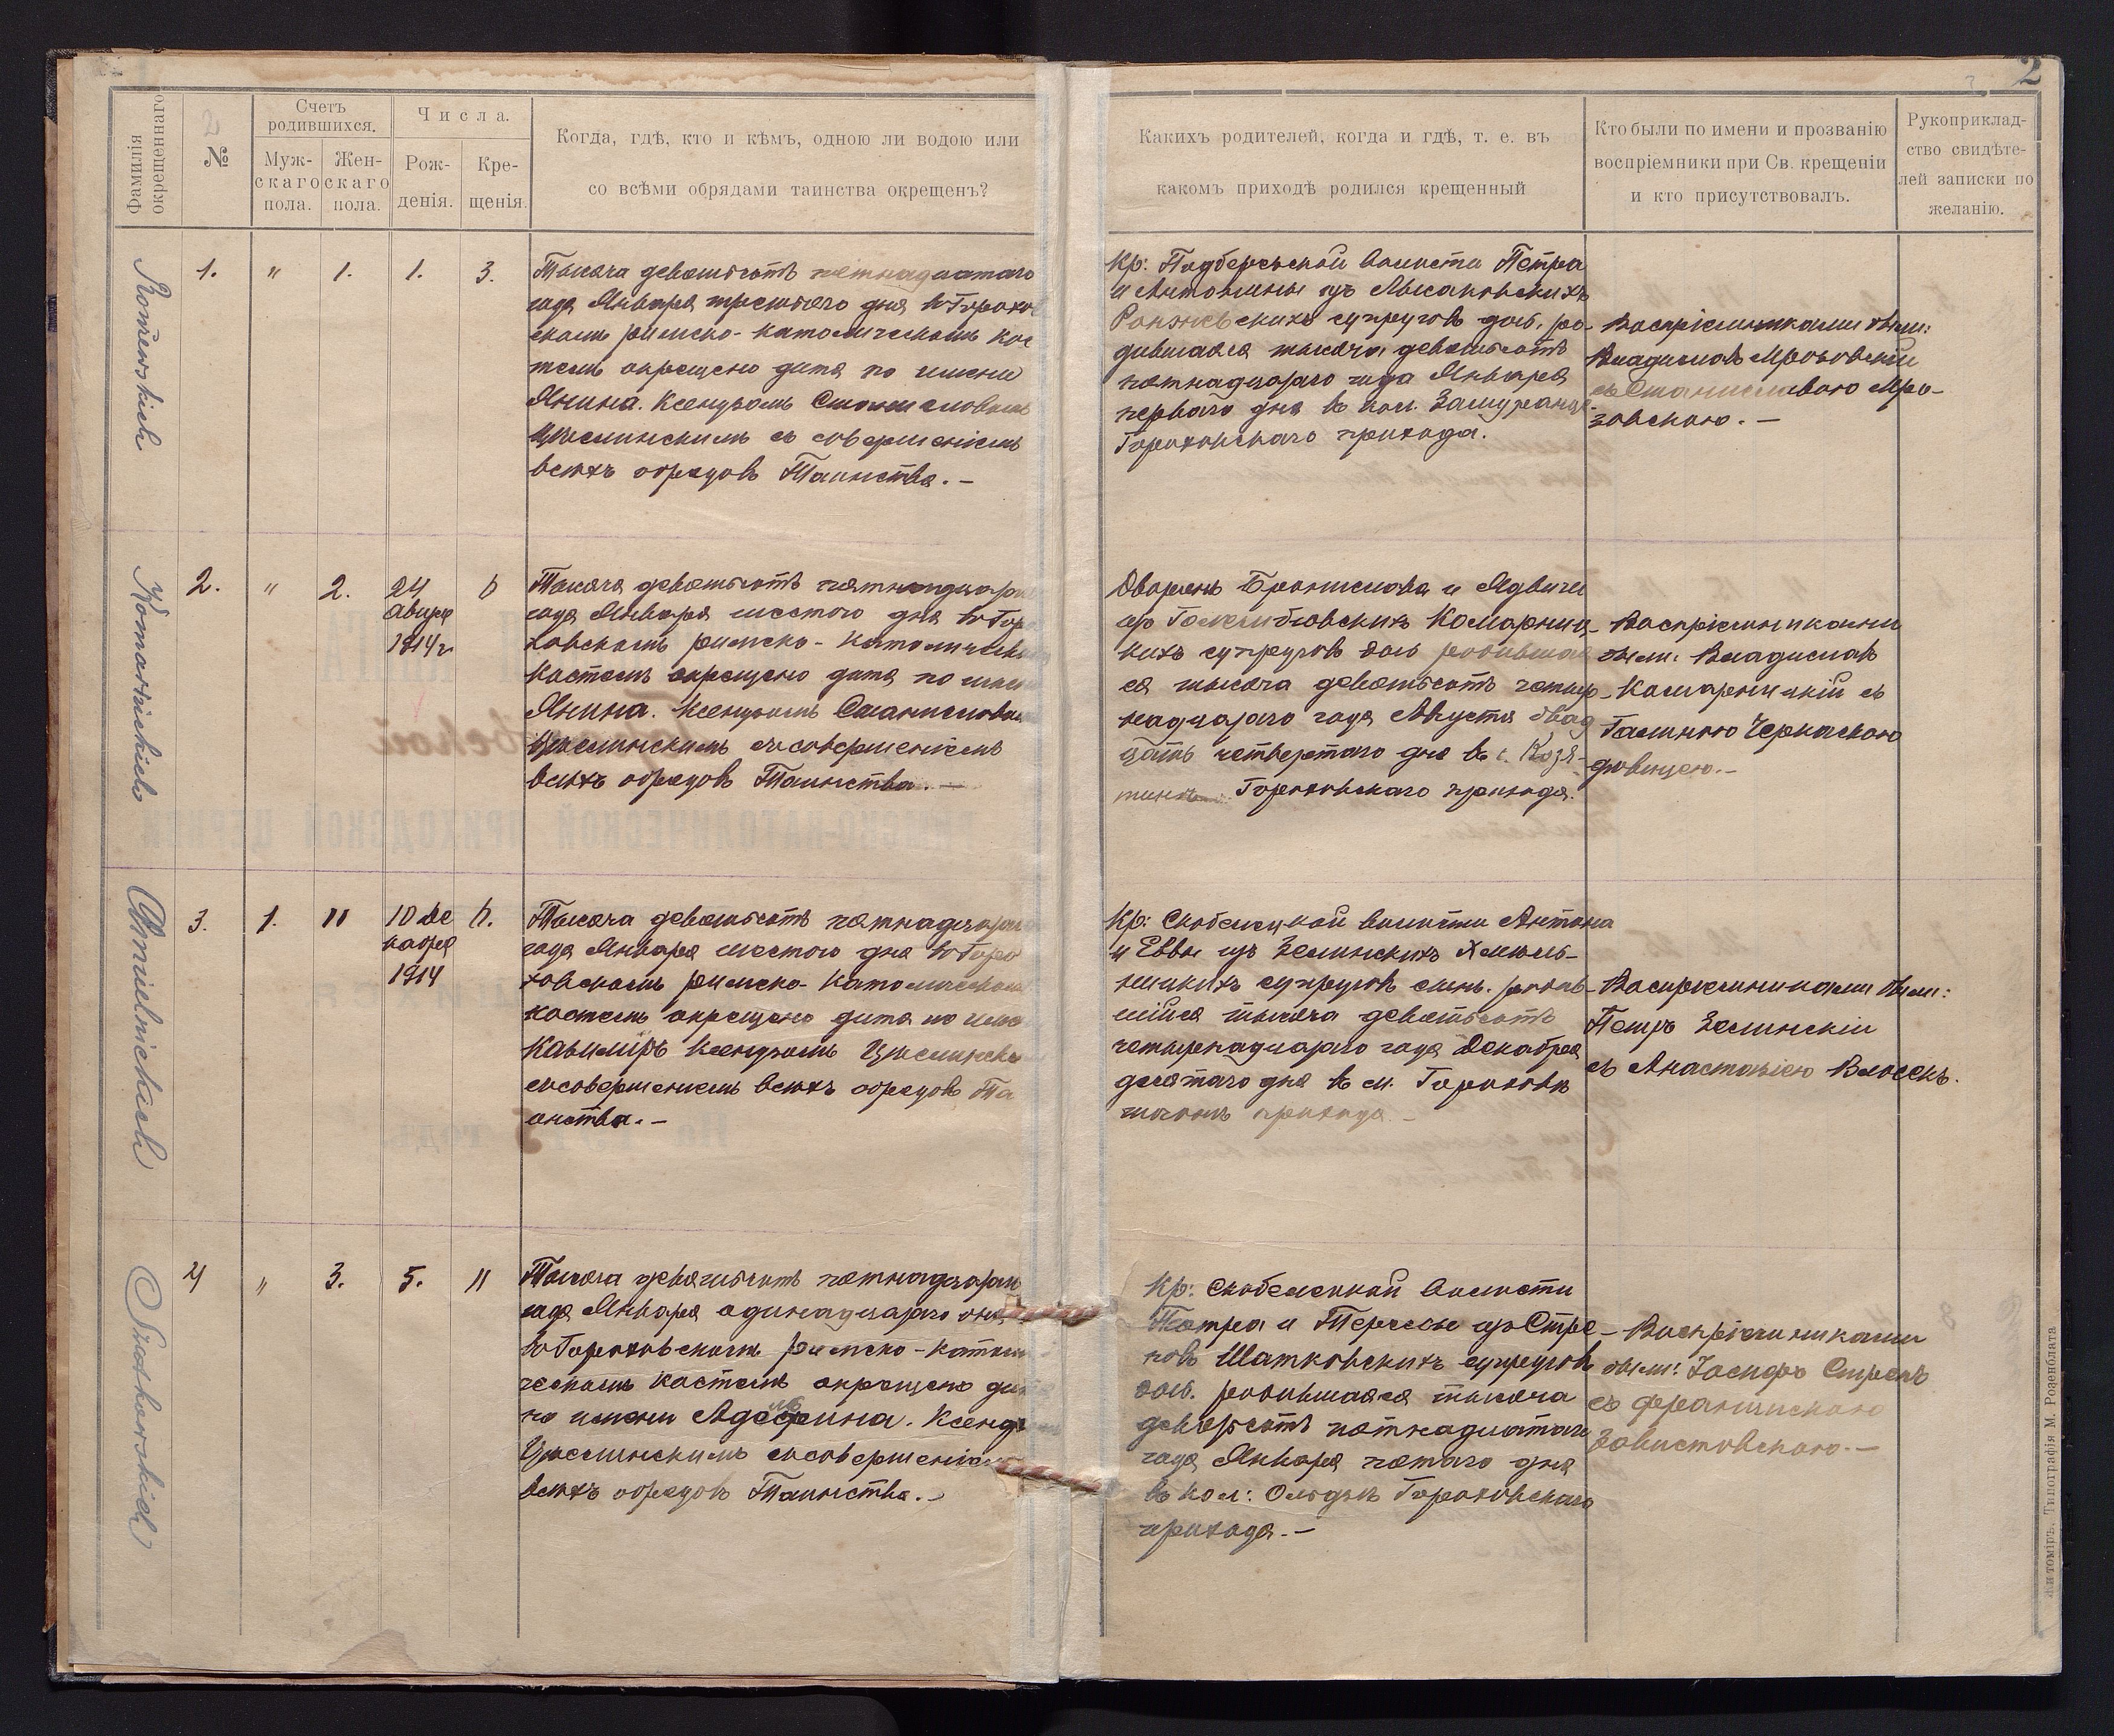 2
Фамилія окрещеннаго
№
Счетъ родившихся.
Муж-
скаго
пола.
Жен-
скаго
пола.
Числа.
Рож-
денія.
Кре-
щенія.
Когда, гдѣ, кто и кѣмъ, одною ли водою или
со всѣми обрядами таинства окрещенъ?
Какихъ родителей, когда и гдѣ, т. е. въ
какомъ приходѣ родился крещенный
Кто были по имени и прозванію
воспріемники при Св. крещеніи
и кто присутствовалъ.
Рукоприклад-
ство свидѣте-
лей записки по
желанію.
1. " 1. 1. 3.
Тысяча девятьсотъ пятнадцатаго
года Января третьяго дня въ Горохо
скомъ римско-католическомъ кос
телѣ окрещено дитя по имени
Янина. Ксендзомъ Станиславомъ
Цѣслинскимъ съ совершеніемъ
всѣхъ обрядовъ Таинства. —
Кр: Подберезской волости Петра
и Антонины изъ Лысаковскихъ
супруговъ дочь, ро-
дившаяся тысяча девятьсотъ
пятнадцараго года Января
перваго дня въ кол.
Гороховскаго прихода.
Воспріемниками были:
Владиславъ Мрозовскій
съ Станиславою Мро-
зовскою. —
Komarnickich
2. " 2. 24
Авгус
1914 г
6
Тысяча девятьсотъ пятнадцара
года Января шестого дня въ Горо
ховскомъ римско-католическо
костелѣ окрещено дитя по имени
Янина. Ксендзомъ Станиславом
Цѣслинскимъ съ совершеніемъ
всѣхъ обрядовъ Таинства. —
Дворянъ Бронислава и Ядвиги
изъ Комарниц-
кихъ супруговъ дочь родивша
ся тысяча девятьсотъ четыр-
надцараго года Августа двад
цать четвертаго дня в с. Козя-
тинѣ Гороховскаго прихода.
Воспріемниками
были: Владиславъ
Комарницкій съ
Галиною Чернаскою
Chmielnickich
3. 1. " 10 Де
кабря
1914
6.
Тысяча девятьсотъ пятнадцара
года Января шестого дня въ Горо
ховскомъ римско-католическом
костелѣ окрещено дитя по имe
Казиміръ Ксендзомъ Цѣслински
съ совершеніемъ всѣхъ обрядовъ Та
инства. —
Кр: Скобелецкой волости Антона
и Еввы изъ Зелинскихъ Хмѣль-
ницкихъ супруговъ сынъ, родив-
шійся тысяча девятьсотъ
четырнадцараго года Декабря
десятаго дня в м. Гороховѣ
прихода —
Воспріемниками были:
Петръ Зелинскій
съ Анастазіею Власекъ.
4 " 3. 5. 11
Тысяча девятьсотъ пятнадцара
года Января одинадцараго дня
въ Гороховскомъ римско-католи
ческомъ костелѣ окрещено дит
по имени Аделина. Ксендз
Цѣслинскимъ съ совершеніем
всѣхъ обрядовъ Таинства. —
Кр: Скобелецкой волости
Петра и Терессы изъ Стре-
ковъ Шатковскихъ супруговъ
дочь. родившаяся тысяча
девятьсотъ пятнадцатаго
года Января пятаго дня
въ кол: Гороховскаго
прихода. —
Воспріемниками
были: Іосифъ
съ Францискою
Завистовскою. —
Житоміръ. Типографія М. Розенблата